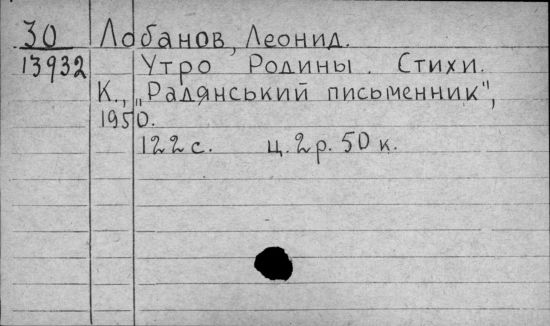 30 Лобанов, Леонид.
13932 Утро Родины. Стихи.
К., „Радянський письменник",
1950.
122 с. ц. 2 р. 50 к.